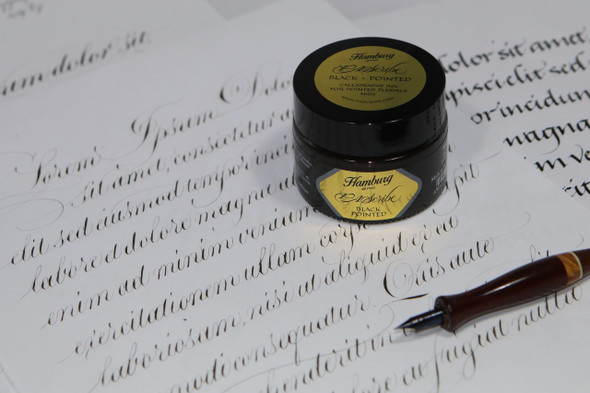 um dolor sit
Lorem Ipsum Dolor
sit amet, consectetur a
elit sed eiusmod tempor inci
labore et dolore magna a
enim ad minim veniam
exercitationem ullam co
laboriosam, nisi at aliquid ex ea
modi consequatur. Quis aute
henderit in
lore eu fugiat nulla
Hamburg
Black - Pointed
Calligraphy Ink
for pointed flexible
nibs
Hamburg
Black
Pointed
dolor sit amet
ipiscielit sed
or incidun
magna
in ve